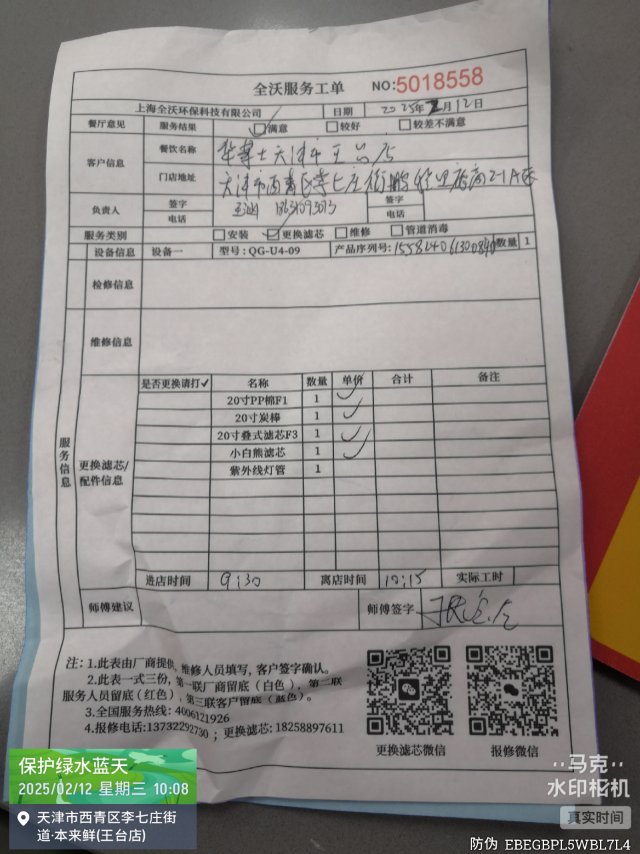 全沃服务工单 NO:5018558
上海全沃环保科技有限公司 日期 2025年2月12日
餐厅意见 服务结果 ☑满意 □较好 □较差不满意
客户信息 餐饮名称 华莱士天津市王台店
门店地址 天津市西青区李七庄街
负责人 签字 签字
电话 电话
服务类别 □安装 ☑更换滤芯 □维修 □管道消毒
设备信息 设备一 型号:QG-U4-09 产品序列号: 数量 1
检修信息
维修信息
服务信息
更换滤芯/配件信息
是否更换请打✓ 名称 数量 单价 合计 备注
20寸PP棉F1 1 ✓
20寸炭棒 1 ✓
20寸叠式滤芯F3 1 ✓
小白熊滤芯 1 ✓
紫外线灯管 1
进店时间 9:30 离店时间 10:15 实际工时
师傅建议 师傅签字
注:1.此表由厂商提供,维修人员填写,客户签字确认。
2.此表一式三份,第一联厂商留底(白色),第二联
服务人员留底(红色),第三联客户留底(蓝色)。
3.全国服务热线:4006121926
4.报修电话:13732292730 ;更换滤芯:18258897611
更换滤芯微信 报修微信
保护绿水蓝天
2025/02/12 星期三 10:08
天津市西青区李七庄街
道·本来鲜(王台店)
马克
水印相机
真实时间
防伪 EBEGBPL5WBL7L4